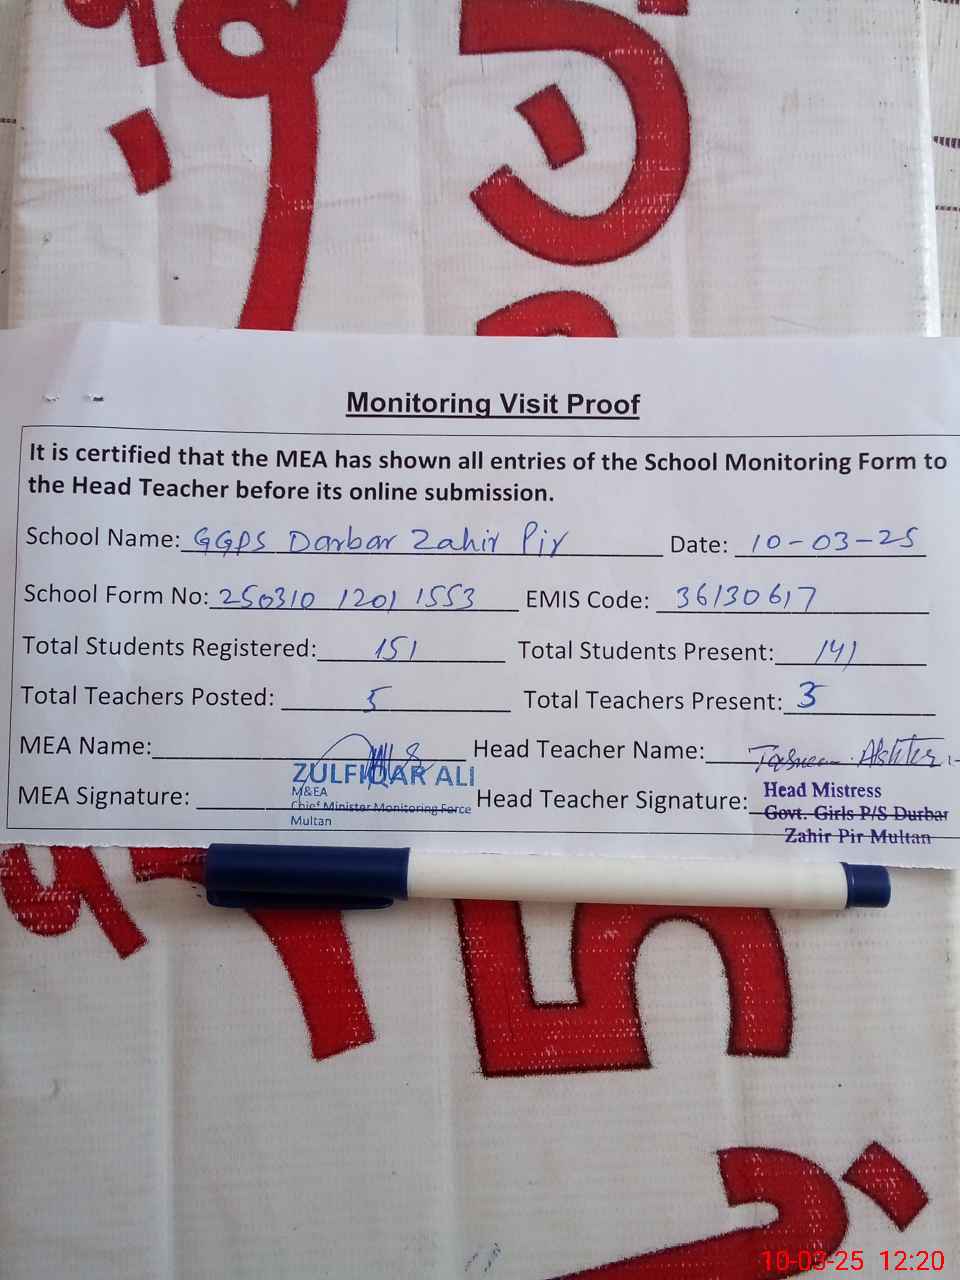 Monitoring Visit Proof
It is certified that the MEA has shown all entries of the School Monitoring Form to
the Head Teacher before its online submission.
School Name: GGPS Darbar Zahir Pir Date: 10-03-25
School Form No: 250310 1201 1553 EMIS Code: 36130617
Total Students Registered: 151 Total Students Present: 141
Total Teachers Posted: 5 Total Teachers Present: 3
MEA Name: Head Teacher Name: Tasneem Akhter
ZULFIQAR ALI
M&EA
Chief Minister Monitoring Force
Multan
MEA Signature: Head Teacher Signature:
Head Mistress
Govt. Girls P/S Durbar
Zahir Pir Multan
10-03-25 12:20